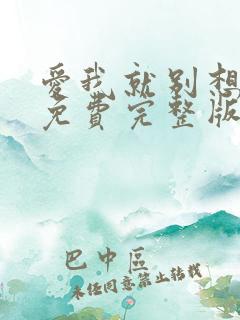 愛我就别想
免費完整版
巴中區
未任同意禁止转载